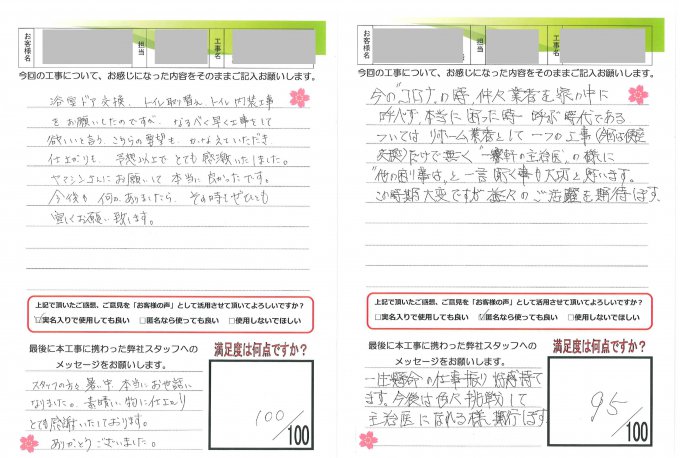 お客様名
担当
工事名
今回の工事について、お感じになった内容をそのままご記入お願いします。
浴室ドア交換、トイレ取り替え、トイレ内装工事
をお願いしたのですが、なるべく早く工事をして
欲しいと言う、こちらの要望も、かなえていただき
仕上がりも、予想以上でとても感激いたしました。
ヤマシンさんにお願いして本当に良かったです。
今後も何かありましたら、その時もぜひとも
宜しくお願い致します。
上記で頂いたご感想、ご意見を「お客様の声」として活用させて頂いてよろしいですか?
☑実名入りで使用しても良い □匿名なら使っても良い □使用しないでほしい
最後に本工事に携わった弊社スタッフへの
メッセージをお願いします。
スタッフの方々暑い中、本当にお世話に
なりました。素晴しい物に仕上がり
とても感謝いたしております。
ありがとうございました。
満足度は何点ですか?
100/100
お客様名
担当
工事名
今回の工事について、お感じになった内容をそのままご記入お願いします。
今の"コロナ"の時、仲々業者を家の中に
呼べず、本当に困った時一呼ぶ時代である
ついては リホーム業者として一つの工事(今回は便座
交換)だけで無く "一軒の主治医"の様に
"他の困り事は"と一言聞く事も大切と思います。
この時期大変ですが益々のご活躍を期待します。
上記で頂いたご感想、ご意見を「お客様の声」として活用させて頂いてよろしいですか?
□実名入りで使用しても良い ☑匿名なら使っても良い □使用しないでほしい
最後に本工事に携わった弊社スタッフへの
メッセージをお願いします。
一生懸命の仕事振り 好感持て
ます。今後は色々挑戦して
主治医になれる様、期待します。
満足度は何点ですか?
95/100